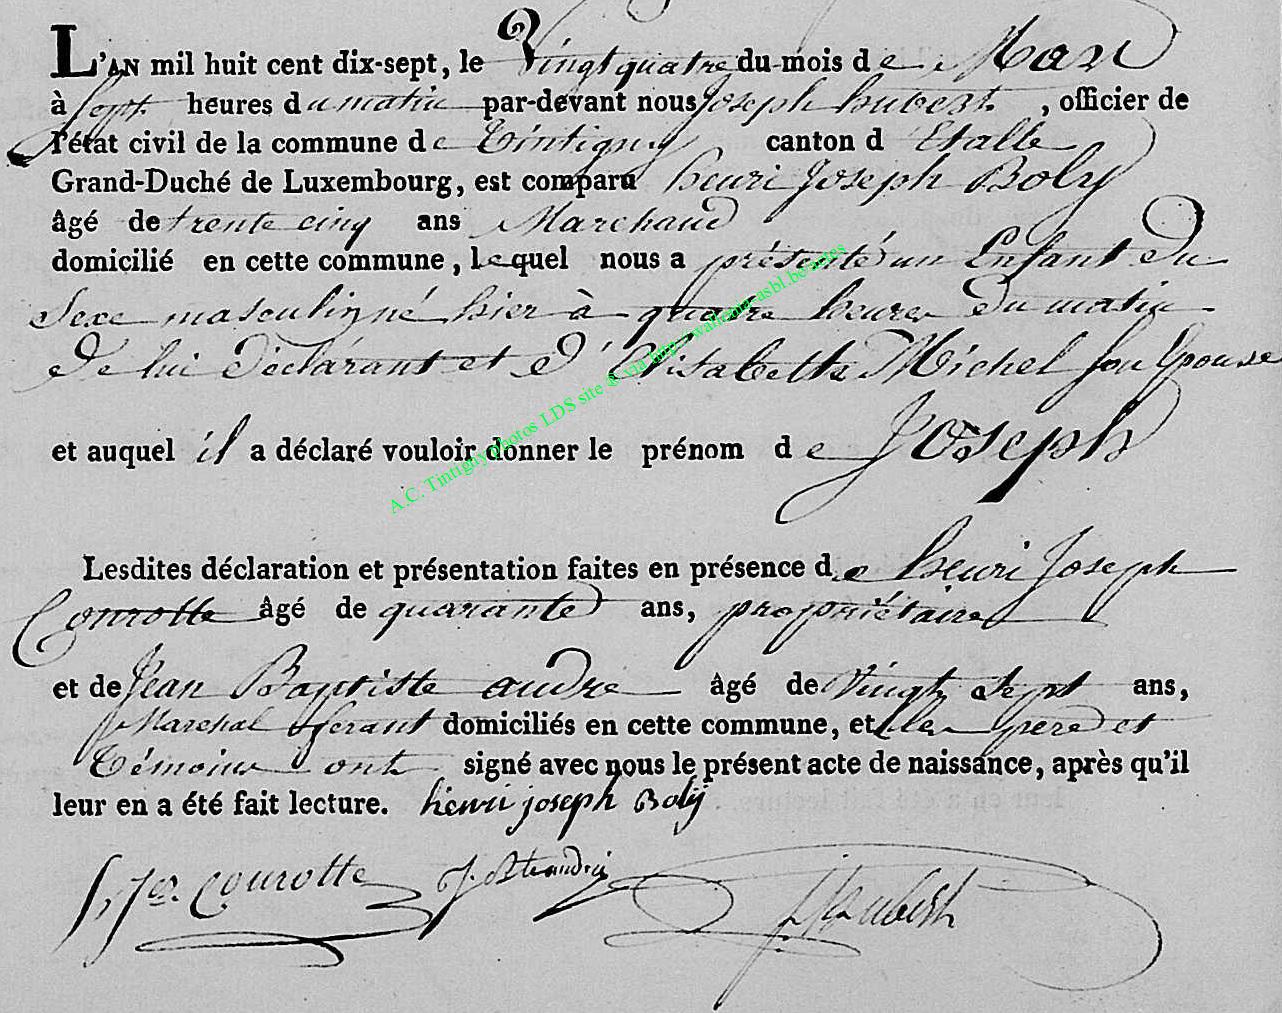 L'AN mil huit cent dix-sept, le Vingt quatre du mois de Mars
à Sept heures du matin par-devant nous Joseph hubert, officier de
l'état civil de la commune de Tintigny canton d'Etalle
Grand-Duché de Luxembourg, est comparu henri Joseph Boly
âgé de trente cinq ans Marchand
domicilié en cette commune, lequel nous a présenté un Enfant du
Sexe masculin né hier à quatre heures du matin
de lui déclarant et d'Elisabeth Michel son Epouse
et auquel il a déclaré vouloir donner le prénom de Joseph
Lesdites déclaration et présentation faites en présence de henri Joseph
Courotte âgé de quarante ans, propriétaire
et de Jean Baptiste andre âgé de Vingt Sept ans,
Marchal ferant domiciliés en cette commune, et les pere et
témoins ont signé avec nous le présent acte de naissance, après qu'il
leur en a été fait lecture. henri joseph Bolÿ
Courotte
A.C. Tintigny photos LDS site @ via http://wallonia-asbl.be/actes